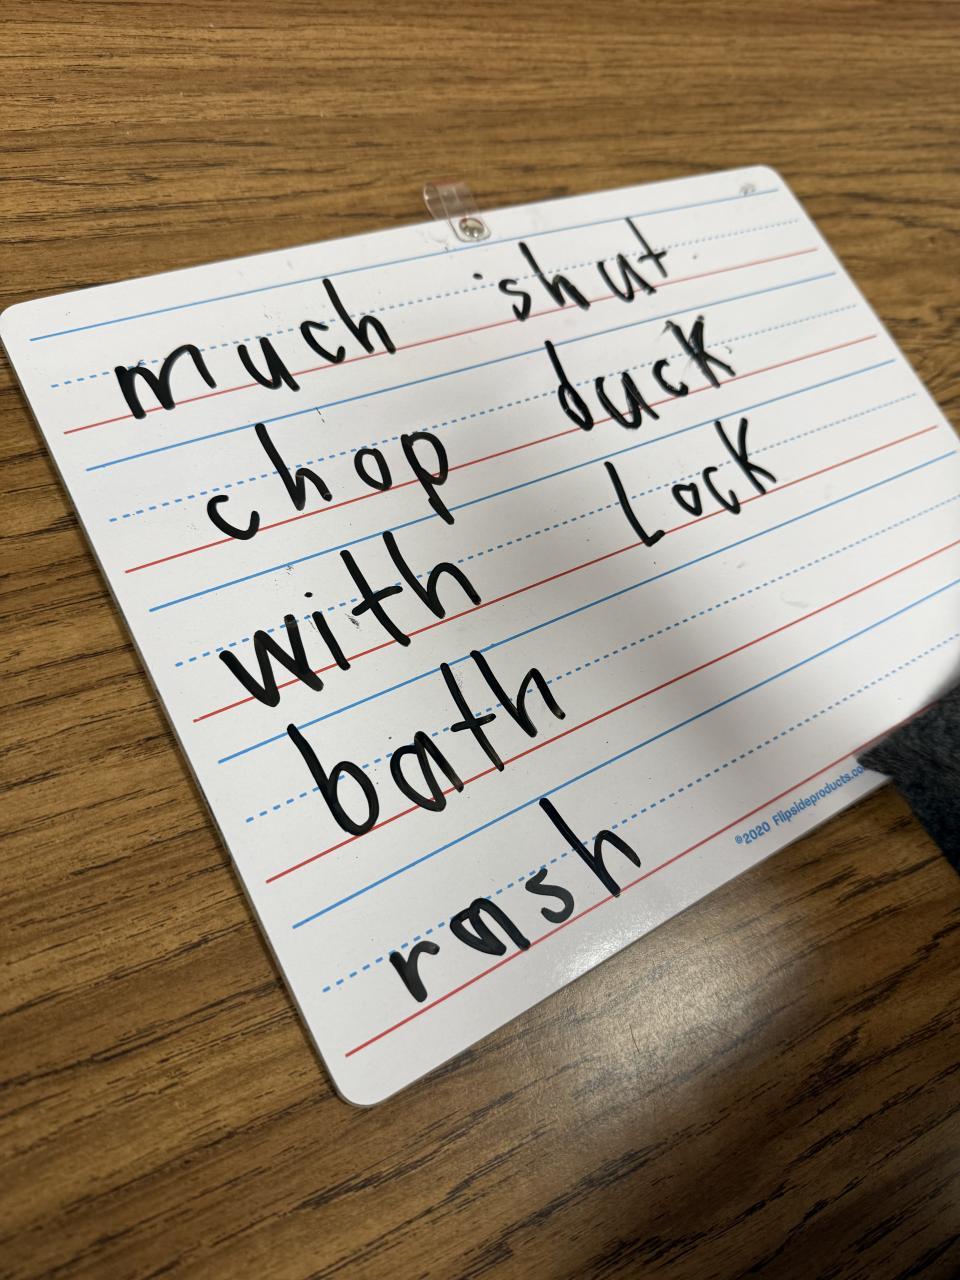 much shut
chop duck
with Lock
bath
rash
©2020 Flipsideproducts.co